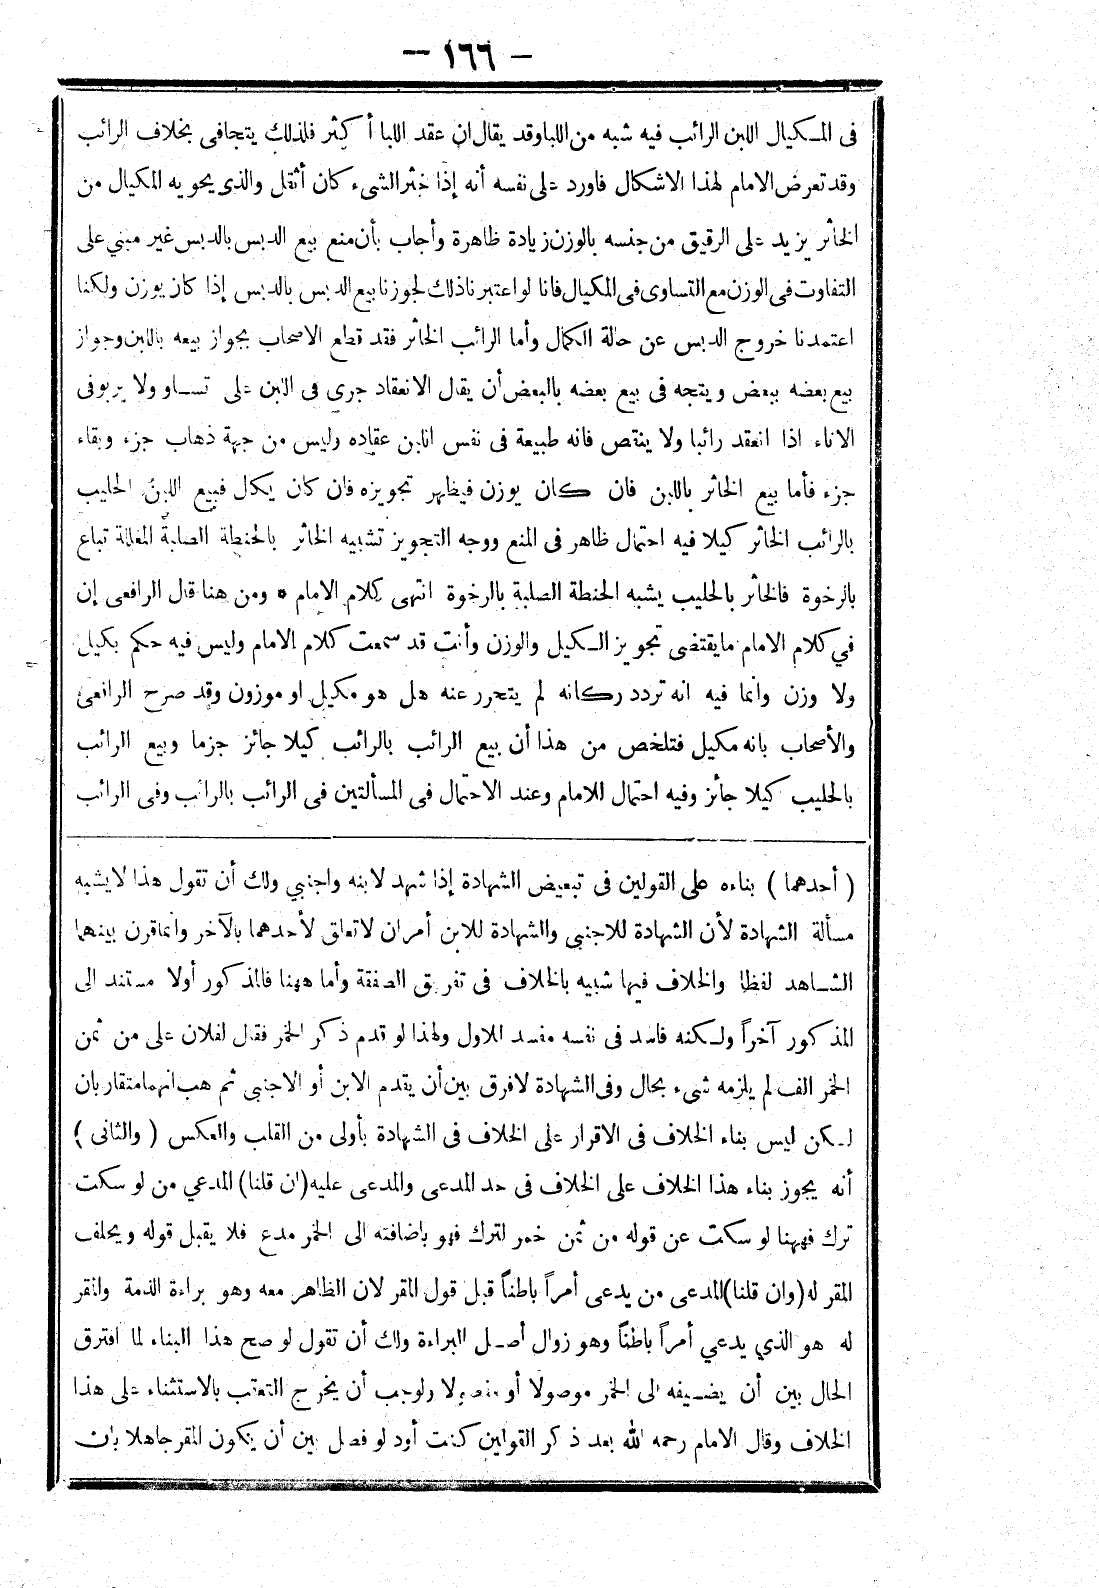 — ١٦٦ —
فى المكيال اللبن الرائب فيه شبه من اللبا وقد يقال ان عقد اللبا أكثر فلذلك يتجافى بخلاف الرائب
وقد تعرض الامام لهذا الاشكال فاورد على نفسه أنه إذا خثر الشىء كان أثقل والذى يحويه المكيال من
الخاثر يزيد على الرقيق من جنسه بالوزن زيادة ظاهرة وأجاب بأن منع بيع الدبس بالدبس غير مبني على
التفاوت فى الوزن مع التساوى فى المكيال فانا لو اعتبرنا ذلك لجوزنا بيع الدبس بالدبس إذا كان يوزن ولكنا
اعتمدنا خروج الدبس عن حالة الكمال وأما الرائب الخاثر فقد قطع الاصحاب بجواز بيعه باللبن وجواز
بيع بعضه ببعض ويتجه فى بيع بعضه بالبعض أن يقال الانعقاد جرى فى اللبن على تساو ولا يربو فى
الاناء اذا انعقد رائبا ولا ينتقص فانه طبيعة فى نفس اللبن عقاده وليس من جهة ذهاب جزء وبقاء
جزء فأما بيع الخاثر باللبن فان كان يوزن فيظهر تجويزه فان كان يكال فبيع اللبن الحليب
بالرائب الخاثر كيلا فيه احتمال ظاهر فى المنع ووجه التجويز تشبيه الخاثر بالحنطة الصلبة المغلة تباع
بالرخوة فالخاثر بالحليب يشبه الحنطة الصلبة بالرخوة انتهى كلام الامام * ومن هنا قال الرافعى إن
في كلام الامام ما يقتضى تجويز الكيل والوزن وأنت قد سمعت كلام الامام وليس فيه حكم بكيل
ولا وزن وانما فيه انه تردد ركانه لم يتحرر عنه هل هو مكيل او موزون وقد صرح الرافعى
والأصحاب بانه مكيل فتلخص من هذا أن بيع الرائب بالرائب كيلا جائز جزما وبيع الرائب
بالحليب كيلا جائز وفيه احتمال للامام وعند الاحتمال فى المسألتين فى الرائب بالرائب وفى الرائب
( أحدهما ) بناءه على القولين فى تبعيض الشهادة إذا شهد لابنه واجنبي ولك أن تقول هذا لا يشبه
مسألة الشهادة لأن الشهادة للاجنبى والشهادة للابن أمران لا تعلق لأحدهما بالآخر وانما قرن بينهما
الشاهد لفظا والخلاف فيها شبيه بالخلاف فى تفريق الصفقة وأما ههنا فالمذكور أولا مستند الى
المذكور آخراً ولكنه فاسد فى نفسه مفسد للاول ولهذا لو قدم ذكر الخمر فقال لفلان على من ثمن
الخمر الف لم يلزمه شىء بحال وفى الشهادة لا فرق بين أن يقدم الابن أو الاجنبى ثم هب انهما متقاربان
لكن ليس بناء الخلاف فى الاقرار على الخلاف فى الشهادة بأولى من القلب والعكس ( والثانى )
أنه يجوز بناء هذا الخلاف على الخلاف فى حد المدعى والمدعى عليه (ان قلنا) المدعي من لو سكت
ترك فههنا لو سكت عن قوله من ثمن خمر لترك فهو باضافته الى الخمر مدع فلا يقبل قوله ويحلف
المقر له (وان قلنا) المدعى من يدعى أمراً باطناً قبل قول المقر لان الظاهر معه وهو براءة الذمة والمقر
له هو الذي يدعي أمراً باطناً وهو زوال أصل البراءة ولك أن تقول لو صح هذا البناء لما افترق
الحال بين أن يضيفه الى الخمر موصولا أو مفصولا ولوجب أن يخرج التعقب بالاستثناء على هذا
الخلاف وقال الامام رحمه الله بعد ذكر القولين كنت أود لو فصل بين أن يكون المقر جاهلا بان